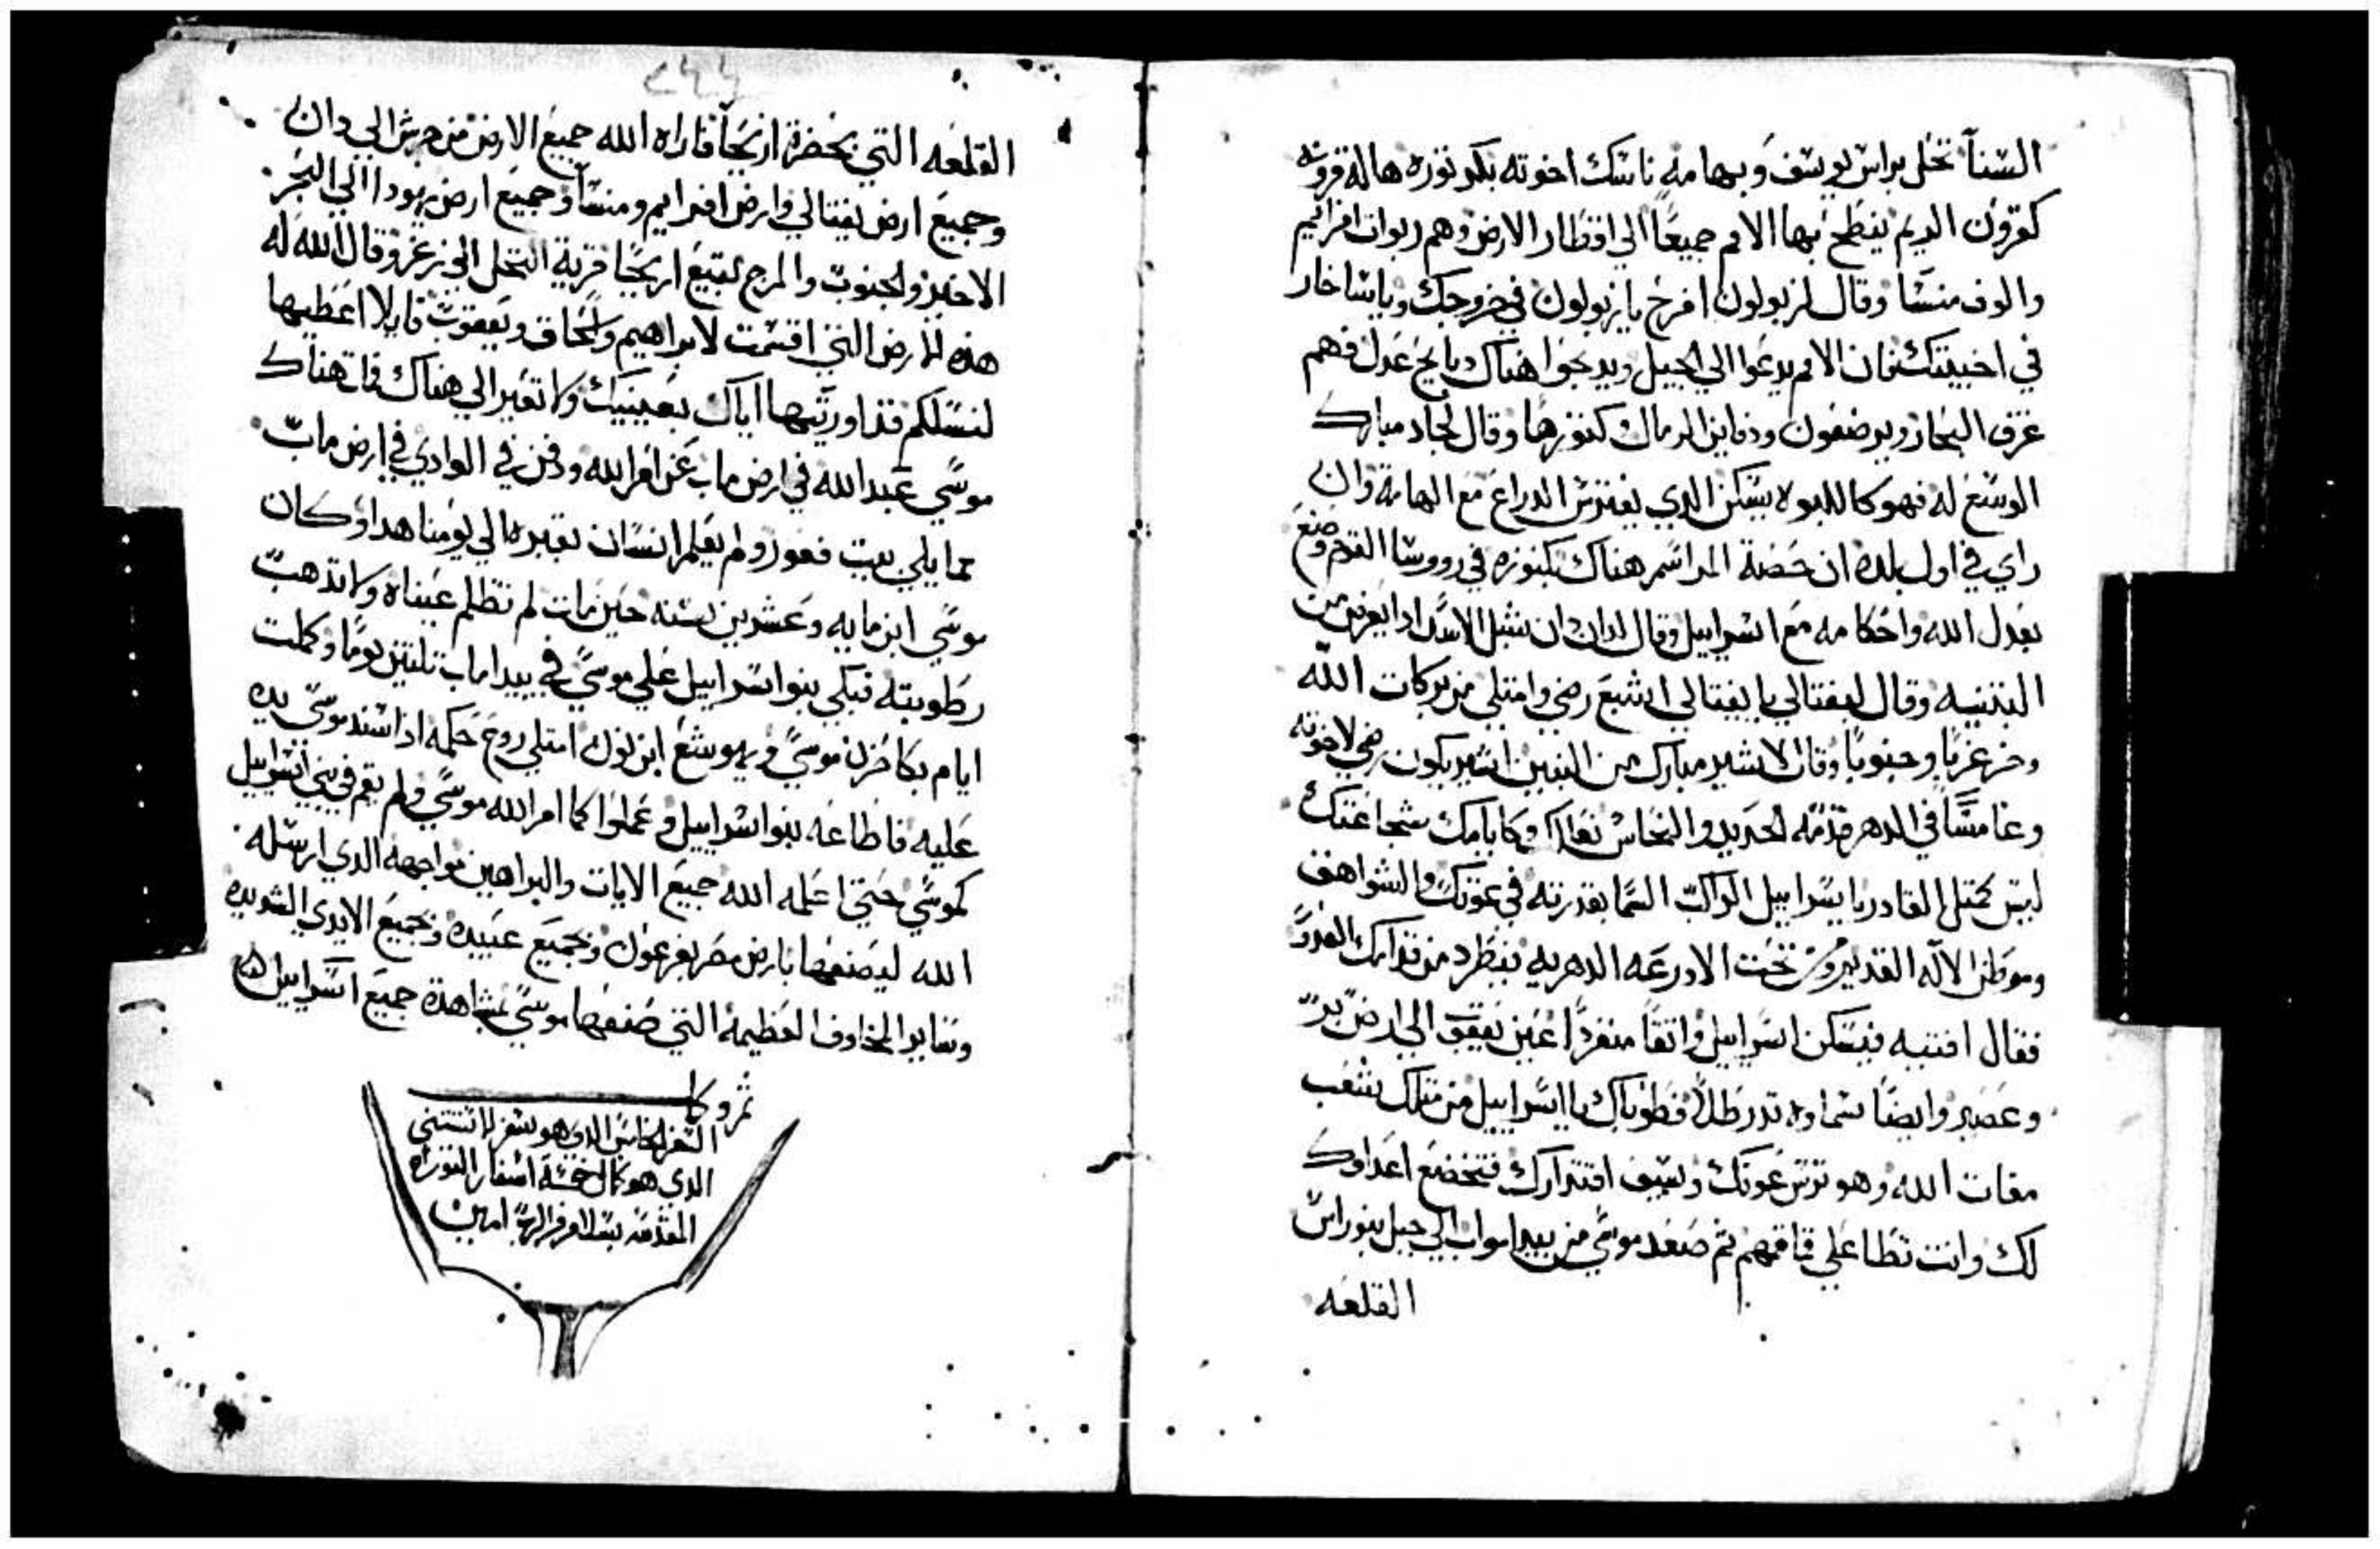 السنآ تحل براس يوسف وبهامة ناسك اخوته بكر ثوره هاله قرونه
كقرون الريم ينطح بها الامم جميعًا الي اقطار الارض وهم ربوات افرائيم
والوف منسا وقال لزبولون افرح يا زبولون في خروجك ويايساخار
في اخبيتك فان الامم يدعوا الي الجبل ويدبحوا هناك دبايح عدل فهم
غزف البحار ويرضعون ودفاين الرمال كنوزها وقال لجاد مبارك
الوسع له فهو كاللبوه يسكن الدي يفترس الدراع مع الهامة وان
راي في اول بلده ان حصة المراسم هناك بكنوزه في رووسا القوم وصنع
بعدل الله واحكامه مع اسراييل وقال لدان دان شبل الاسد ادا يفرز من
البتنيه وقال لنفتالي يا نفتالي اشبع رضي وامتلي من بركات الله
وخز غربا وجنوبا وقال لاشير مبارك من البنين اشير يكون رضي لاخوته
وغامسًا في الدهر قدمه الحديد والنحاس نعالك وكايامك شجاعتك
ليس كمتل القادر يا يسراييل الراكب السما بقدرته في عونك والشواهق
وموطن الالاه القديم ومن تحت الادرعه الدهريه ينطرد من قدامك العدو
فقال افنيه فيسكن اسراييل واتقًا منفردًا عين يعقوب الي ارض بر
وعصير وايضًا سماوه تدر طلا فطوباك يا اسراييل من متلك شعب
مغات الله وهو ترس عونك وسيف اقتدارك فتخضع اعداوك
لك وانت تطا علي قاقمهم ثم صعد موسي من بيدا مواب الي جبل بنو راس
القلعه
القلعه التي بحضرة اريحآ فاراه الله جميع الارض من جرش الي دان
وجميع ارض نفتالي وارض افرايم ومنسآ وجميع ارض يهودا الي البحر
الاخير والجنوب والمرج لبتيع اريحا قرية النخل الي زغر وقال الله له
هذه الارض التي اقسمت لابراهيم واسحاق ويعقوب قايلا اعطيها
لنسلكم قد اوريتها اياك بعينيك ولا تعبر الي هناك فمات هناك
موسي عبد الله في ارض ماب عن امر الله ودفن في الوادي في ارض ماب
مما يلي بيت فعور ولم يعلم انسان بقبره الي يومنا هدا وكان
موسي ابن مايه وعشرين سنه حين مات لم تظلم عيناه ولا تدهب
رطوبته فبكي بنوا اسراييل علي موسي في بيدا ماب تلتين يومًا وكملت
ايام بكا حزن موسي ويهوشع ابن نون امتلي روح حكمه اد اسند موسي يده
عليه فاطاعه بنوا اسراييل وعملوا كما امر الله موسي ولم يقم في بني اسراييل
كموسي حتي اعلمه الله جميع الايات والبراهين مواجهه الدي ارسله
الله ليصنعها بارض مصر بفرعون وبجميع عبيده وبجميع الايدي الشديده
وسايد المخاوف العظيمه التي صنعها موسي بمشاهدة جميع اسراييل
تم وكمل
السفر الخامس الدي هو سفر الاستتني
الدي هو كمال خمسة اسفار التوراه
المقدسه بسلام من الرب امين